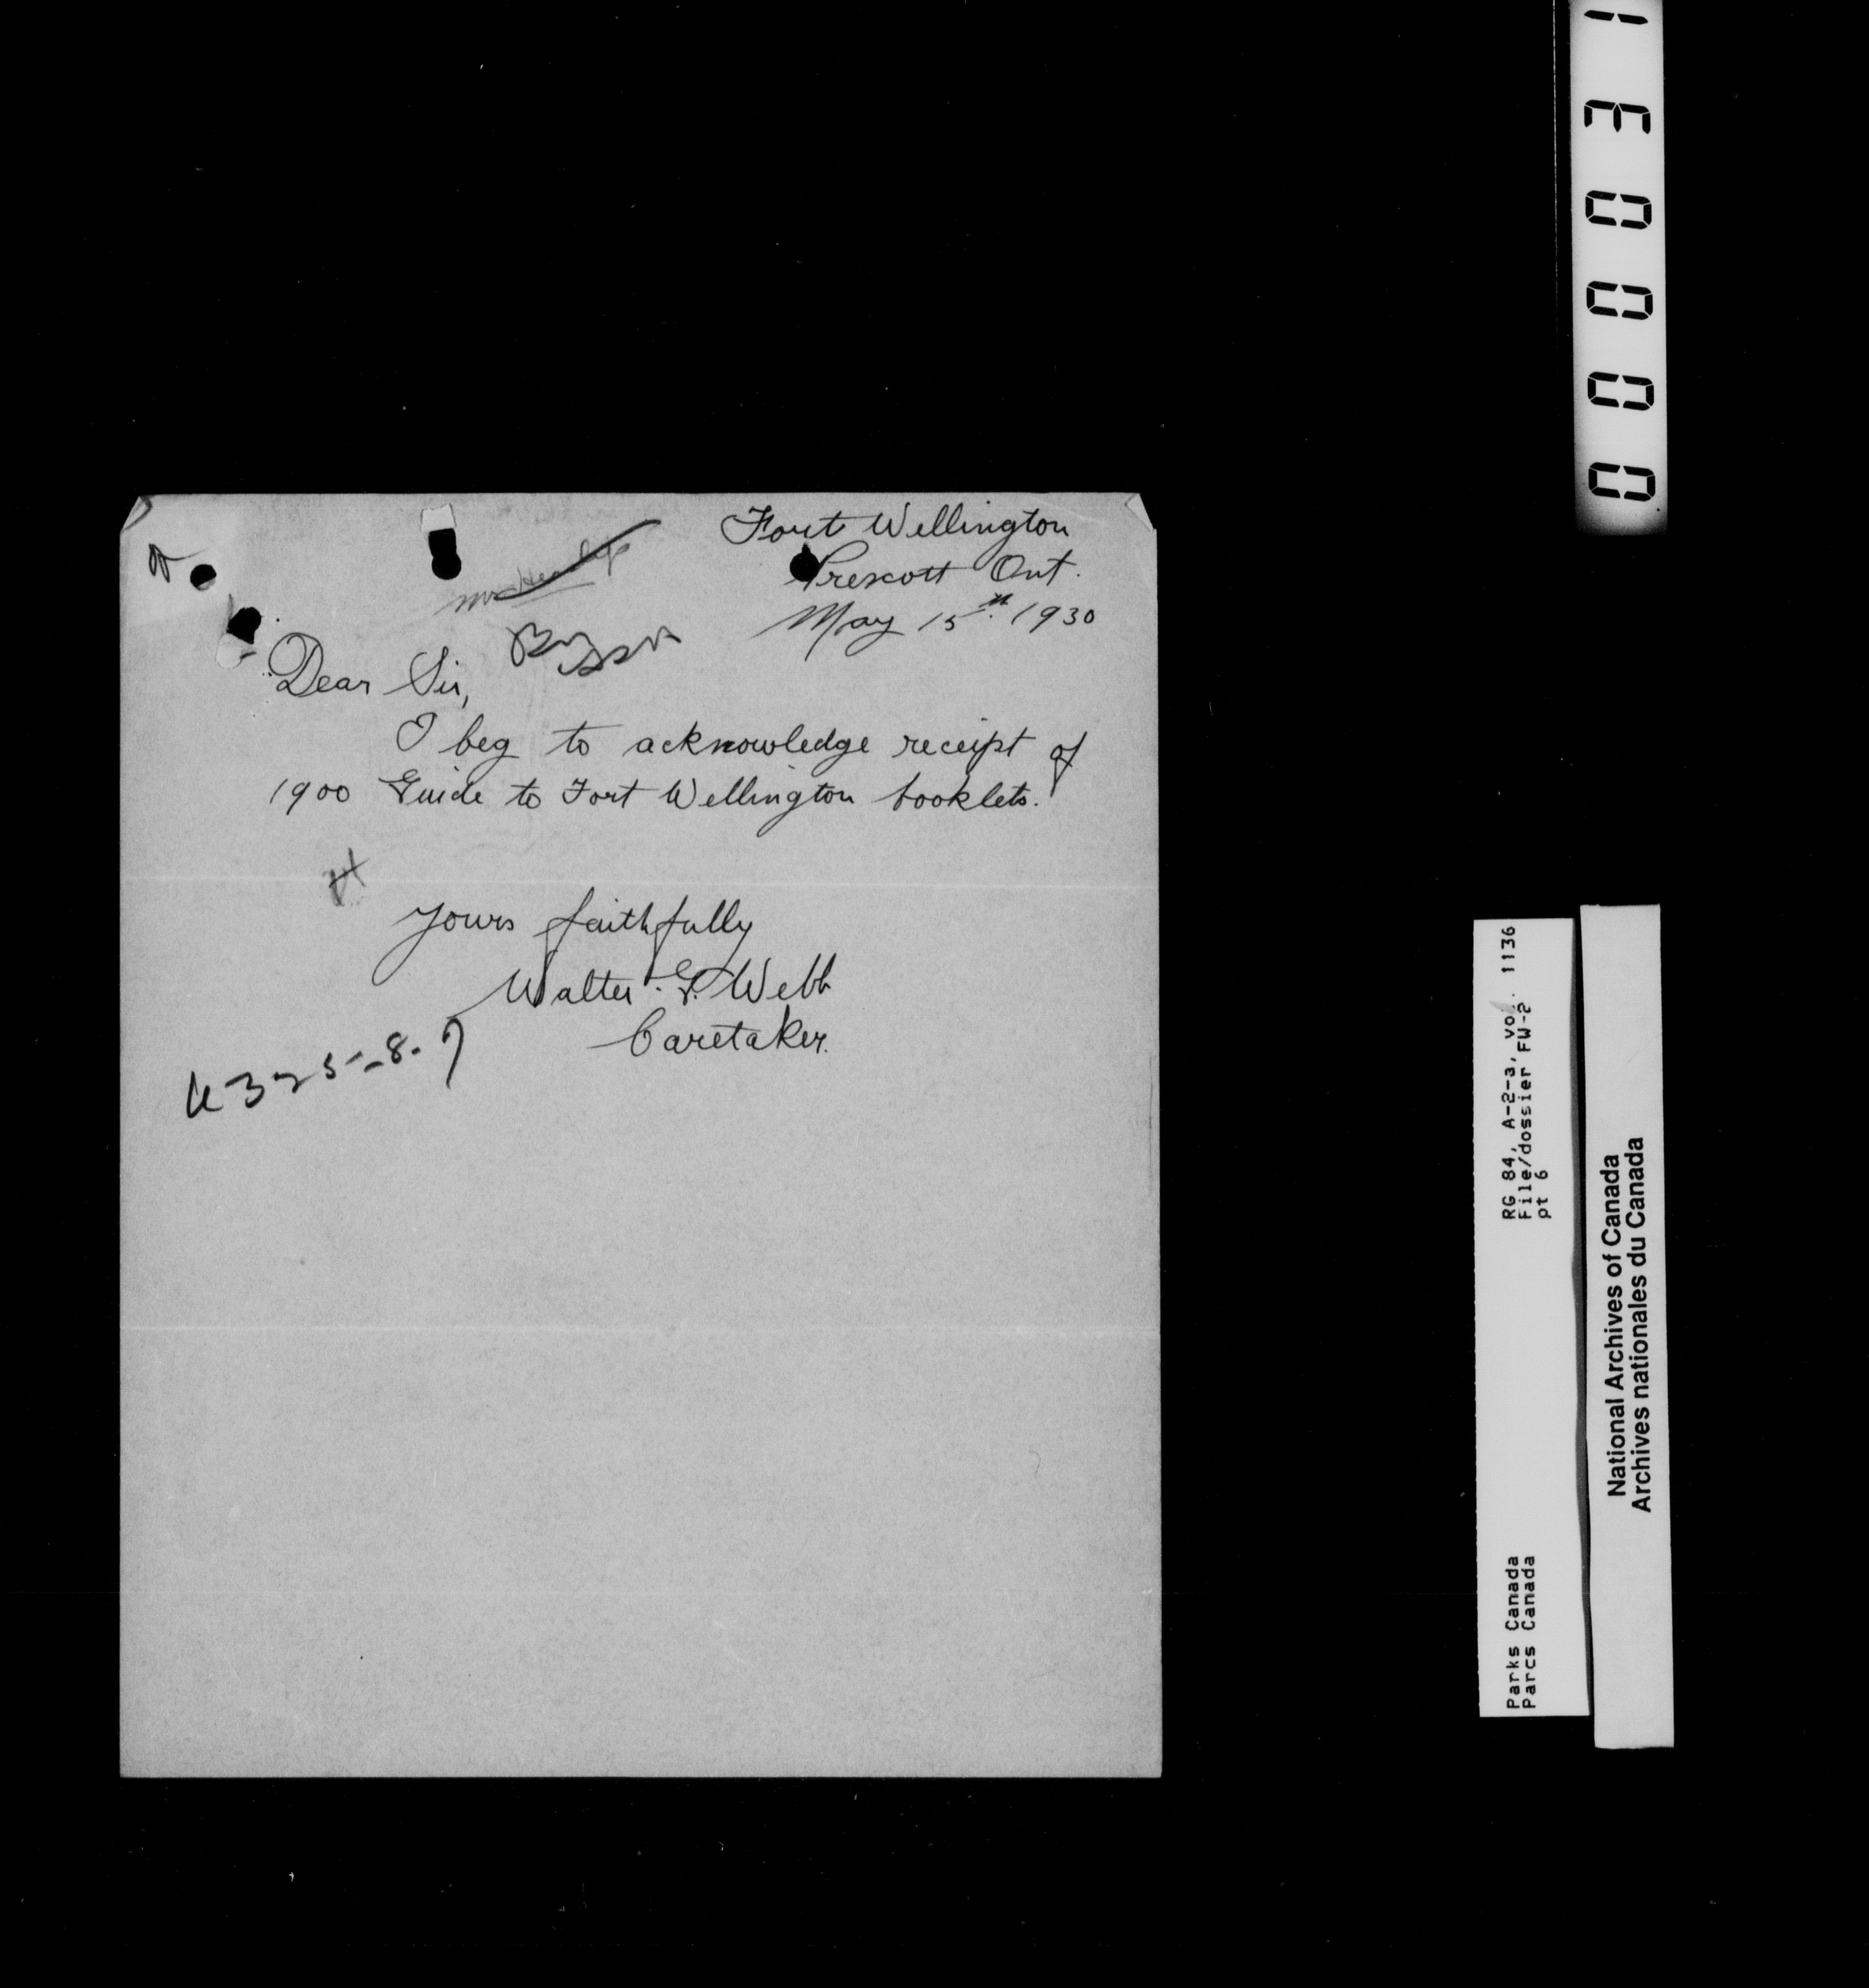 Fort Wellington
Prescott Ont.
May 15th. 1930
Dear Sir,
I beg to acknowledge receipt of
1900 Guide to Fort Wellington booklets.
Yours faithfully
Walter. G. Webb
Caretaker.
000031
RG 84, A-2-a, vol. 1136
File/dossier FW-2
pt 6
Parks Canada
Parcs Canada
National Archives of Canada
Archives nationales du Canada